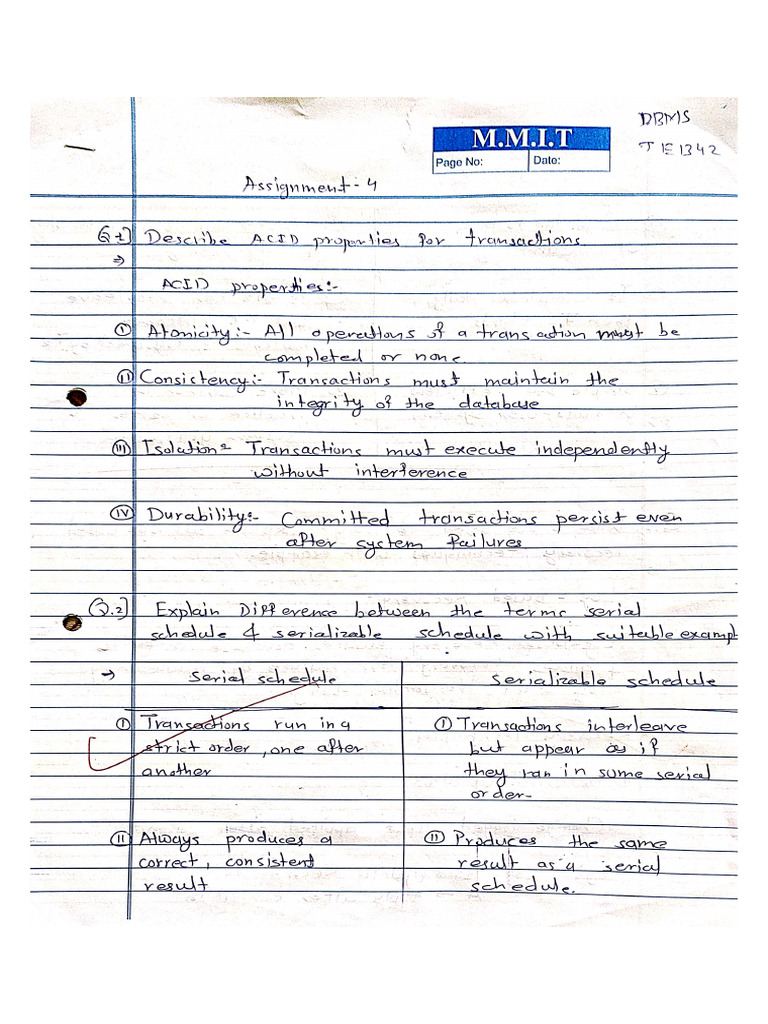 DBMS
M.M.I.T
TE1342
Page No:
Date:
Assignment - 4
Q1] Describe ACID properties for transactions
⇒
ACID properties:-
(I) Atomicity:- All operations of a transaction must be
completed or none.
(II) Consistency:- Transactions must maintain the
integrity of the database
(III) Isolation= Transactions must execute independently
without interference
(IV) Durability:- Committed transactions persist even
after system failures
Q.2] Explain Difference between the terms serial
schedule & serializable schedule with suitable exampl
→ Serial schedule
Serializable schedule
(I) Transactions run in a
strict order, one after
another
(I) Transactions interleave
but appear as if
they ran in some serial
order-
(II) Always produces a
correct, consistent
result
(II) Produces the same
result as a serial
schedule.